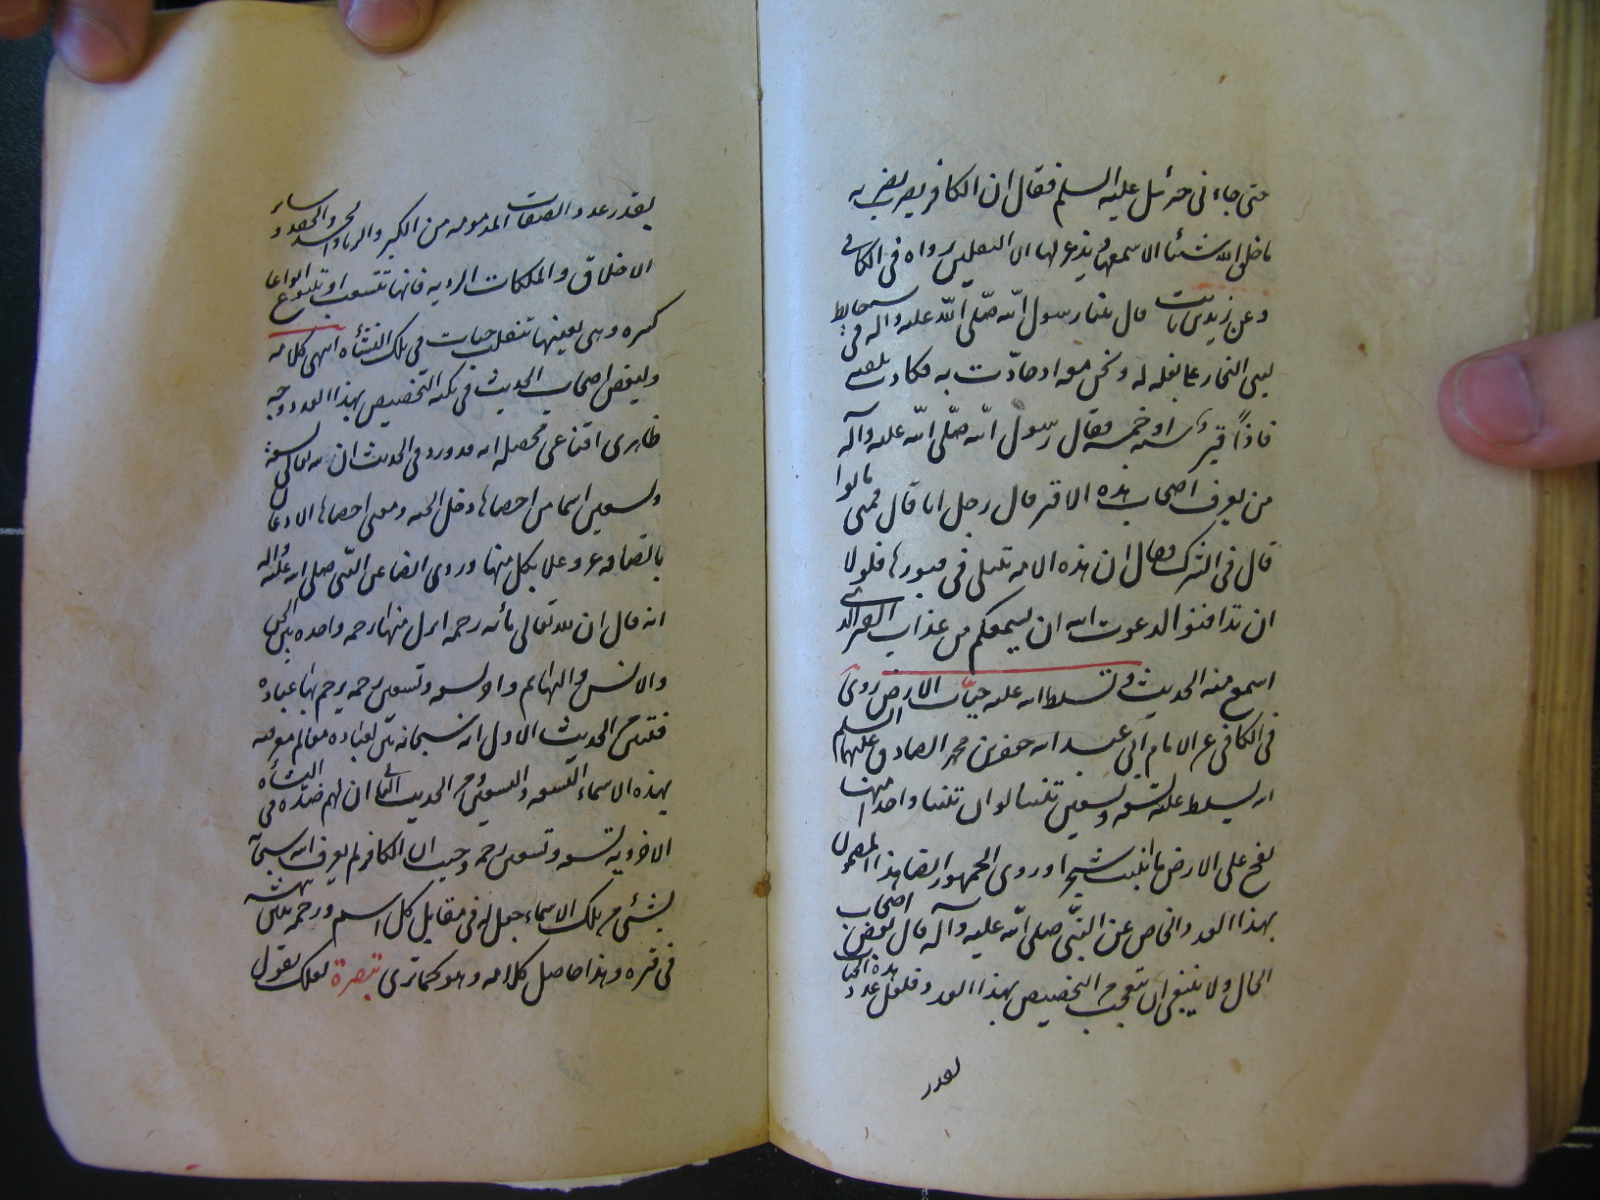 حتى جاءنى جبرئيل عليه السلم فقال ان الكافر يضرب ضربة
ما خلق الله شيئا الا سمعها ويذعر لها الا الثقلين رواه فى الكافى
وعن زيد بن ثابت قال بينا رسول الله صلى الله عليه واله فى حايط
لبنى النجار على بغلة له ونحن معه اذ حادت به فكادت تلقيه
فاذا اقبر ستة او خمسة فقال رسول الله صلى الله عليه وآله
من يعرف اصحاب هذه الاقبر قال رجل انا قال فمتى ماتوا
قال فى الشرك فقال ان هذه الامة تبتلى فى قبورها فلولا
ان تدافنوا لدعوت الله ان يسمعكم من عذاب القبر الذى
اسمع منه الحديث وتسلط الله عليه حيات الارض روى
فى الكافى عن الامام ابى عبد الله جعفر بن محمد الصادق عليهما السلم
ان الله يسلط عليه تسعة وتسعين تنينا لو ان تنينا واحدا منها
نفخ على الارض ما انبتت شجرا وروى الجمهور ايضا هذا المضمون
بهذا العدد الخاص عن النبى صلى الله عليه وآله قال بعض اصحاب
الحال ولا ينبغى ان تتعجب من التخصيص بهذا العدد فلعل عدد هذه الحيات
بقدر
بقدر عدد الصفات المذمومة من الكبر والريا والحسد والحقد وساير
الاخلاق والملكات الردية فانها تتشعب وتتنوع انواعا
كثيرة وهى بعينها تنقلب حيات فى تلك النشأة انتهى كلامه
ولبعض اصحاب الحديث فى نكتة التخصيص بهذا العدد وجه
ظاهرى اقناعى محصله انه قد ورد فى الحديث ان لله تعالى تسعة
وتسعين اسما من احصاها دخل الجنة ومعنى احصاها الاذعان
باتصافه عز وعلا بكل منها وروى ايضا عن النبى صلى الله عليه واله
انه قال ان لله تعالى مائة رحمة انزل منها رحمة واحدة بين الجن
والانس والبهائم واخر تسعة وتسعين رحمة يرحم بها عباده
فتبين من الحديث الاول انه سبحانه بين لعباده معالم معرفته
بهذه الاسماء التسعة والتسعين ومن الحديث الثانى ان لهم عنده فى النشأة
الاخروية تسعة وتسعين رحمة وحيث ان الكافر لم يعرف الله سبحانه
بشئ من تلك الاسماء جعل له فى مقابل كل اسم ورحمة تنين تنهشه
فى قبره وهذا حاصل كلامه وهو كما ترى تبصرة لعلك تقول